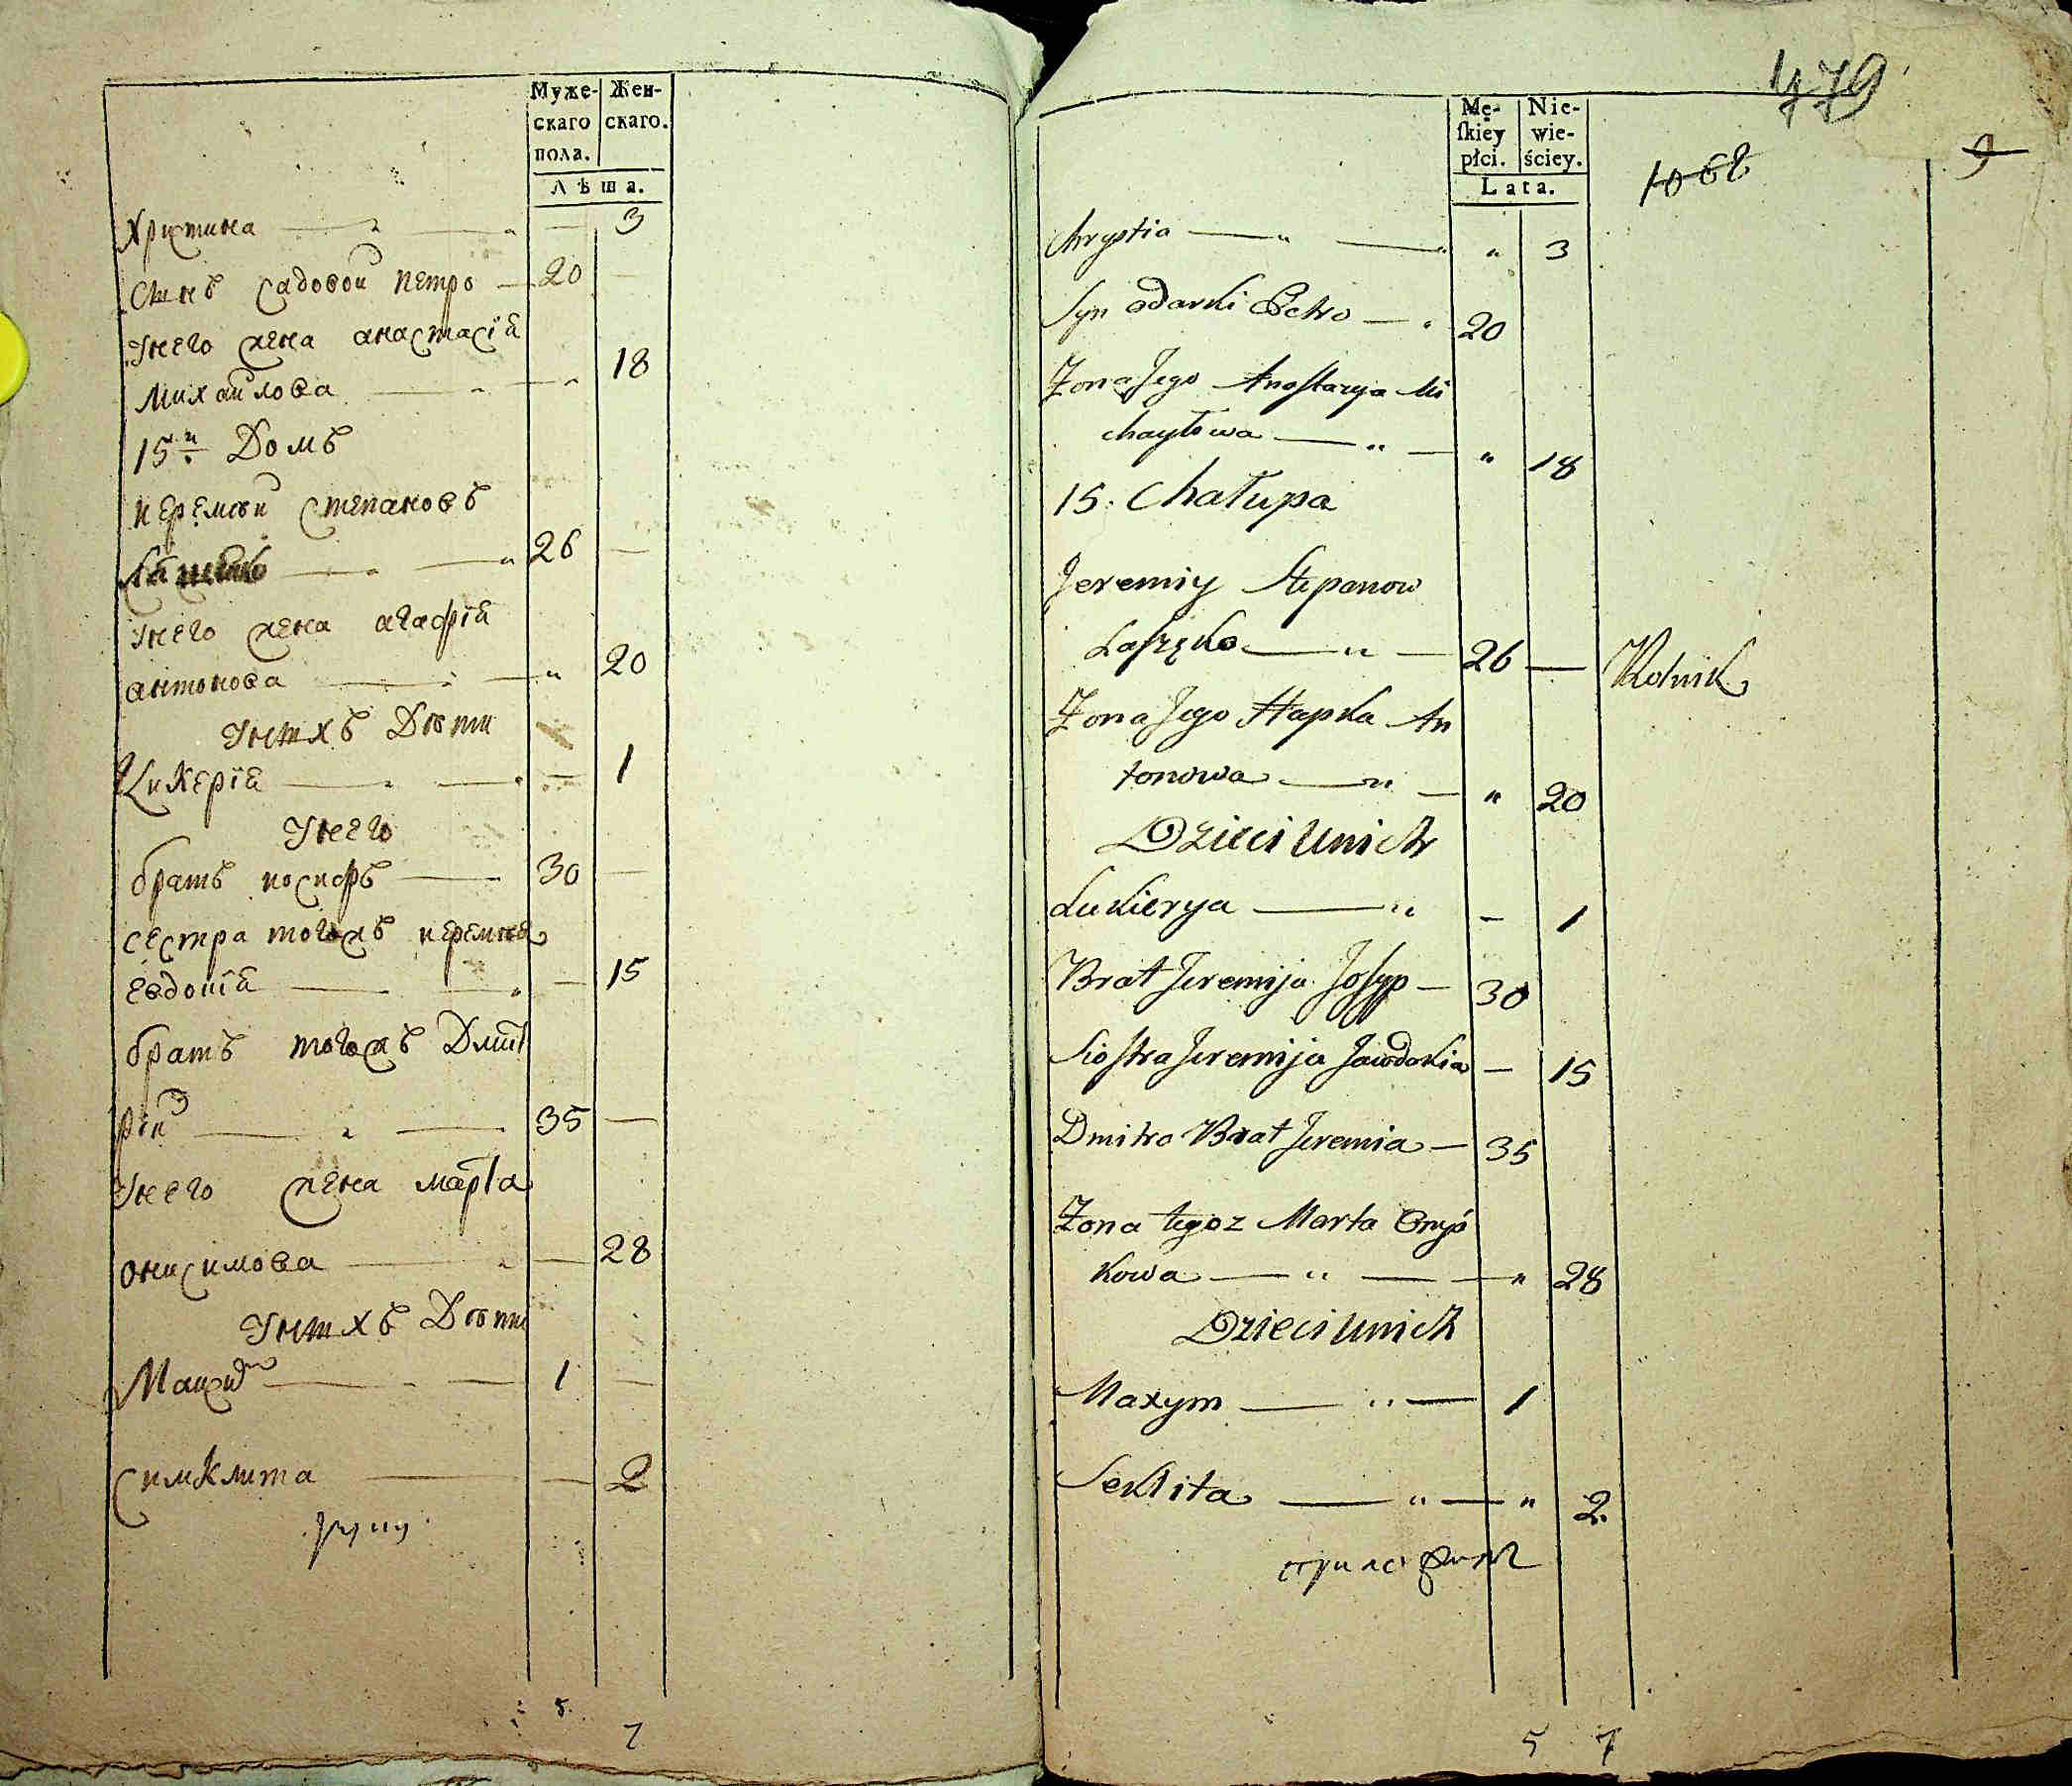 Муже-
скаго
пола.
Жен-
скаго.
Лѣта.
Христина — „ — „ — 3
Синъ Садовой Петро — 20 —
Унего жена анастасїя
Михайлова — „ — „ 18
15й Домъ
иеремѣй Степановъ
— „ — „ 26 —
Унего жена агафїя
антонова — „ — „ 20
Унихъ Дѣти
Лукерїя — „ — „ — 1
Унего
братъ иосифъ — 30 —
сестра тогожъ иеремѣя
Евдокїя — „ — „ — 15
братъ тогожъ Дмит
рїй — „ — 35 —
Унего жена марѳа
онисимова — „ — 28
Унихъ Дѣти
Максим — „ — 1 —
Симклита — — 2
5. 7
479
9
1068
Mę-
ſkiey
płci.
Nie-
wie-
ściey.
Lata.
Chrystia — „ — „ „ 3
Syn Odarki Petro — „ 20
Zona Jego Anastazya Mi
chayłowa — „ — „ 18
15. Chałupa
Jeremiy Stepanow
Łaszęko — „ — 26 — Rolnik
Zona Jego Hapka An
tonowa — „ — „ 20
Dzieci unich
Łukierya — „ — 1
Brat Jeremija Josyp — 30
Siostra Jeremija Jawdokia — 15
Dmitro Brat Jeremia — 35
Zona tegoz Marta Onyś
kowa — „ — „ 28
Dzieci unich
Maxym — „ — 1
Seklita — „ — „ 2.
5 7